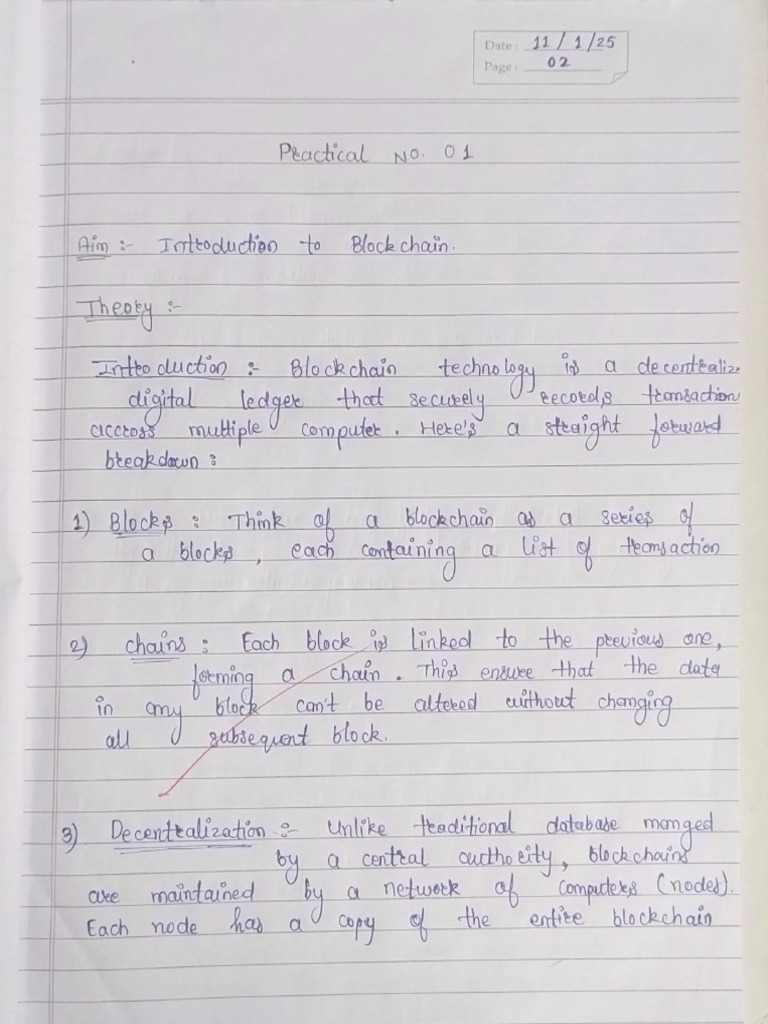 Date : 11 / 1 / 25
Page : 02
Practical No. 01
Aim :- Introduction to Blockchain.
Theory :-
Introduction :- Blockchain technology is a decentraliz
digital ledger that securely records transaction
accross multiple computer. Here's a straight forward
breakdown :
1) Blocks : Think of a blockchain as a series of
a blocks, each containing a list of transaction
2) chains : Each block is linked to the previous one,
forming a chain. This ensure that the data
in any block can't be altered without changing
all subsequent block.
3) Decentralization :- Unlike traditional database manged
by a central authority, blockchains
are maintained by a network of computers (nodes).
Each node has a copy of the entire blockchain